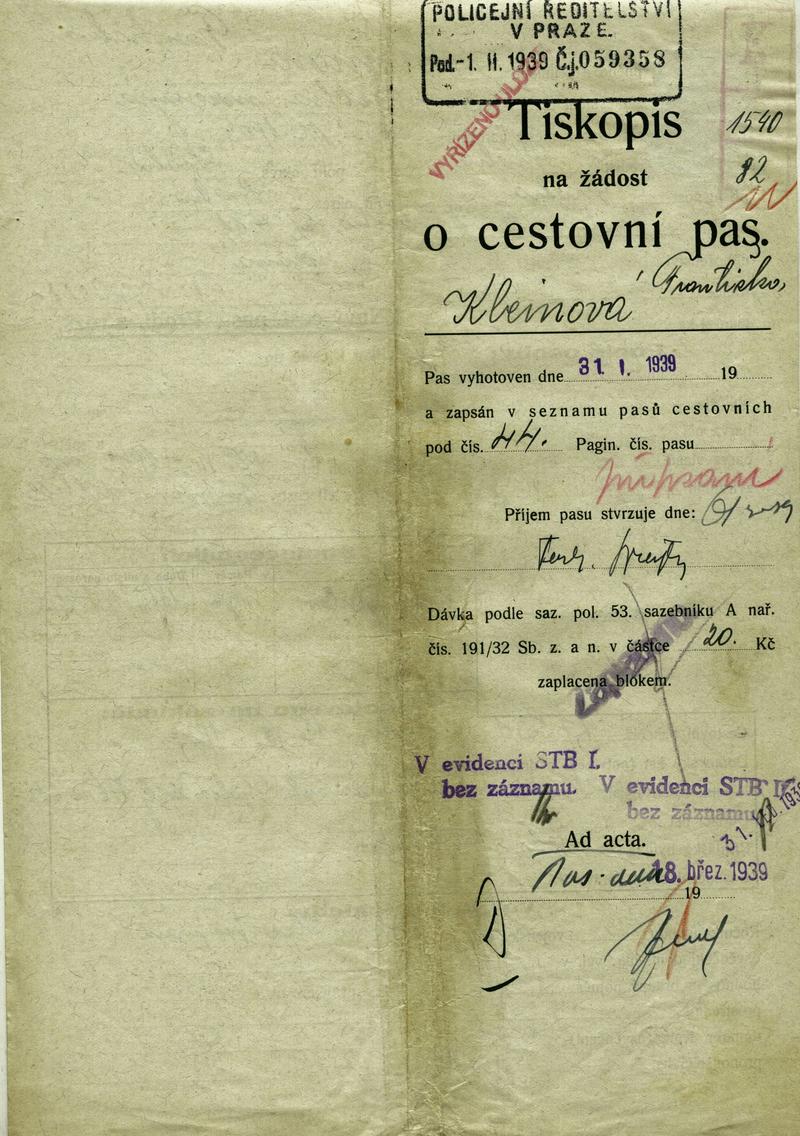 POLICEJNÍ ŘEDITELSTVÍ
V PRAZE.
Pod.-1. II. 1939 Č.j. 059358
VYŘÍZENO
Tiskopis
1540
82
na žádost
o cestovní pas.
Kleinová Františka,
Pas vyhotoven dne 31. I. 1939 19
a zapsán v seznamu pasů cestovních
pod čís. 44. Pagin. čís. pasu
Příjem pasu stvrzuje dne:
Dávka podle saz. pol. 53. sazebníku A nař.
čís. 191/32 Sb. z. a n. v částce 20. Kč
zaplacena blokem.
V evidenci STB I.
bez záznamu.
V evidenci STB
bez záznamu
Ad acta.
18. břez. 1939
19